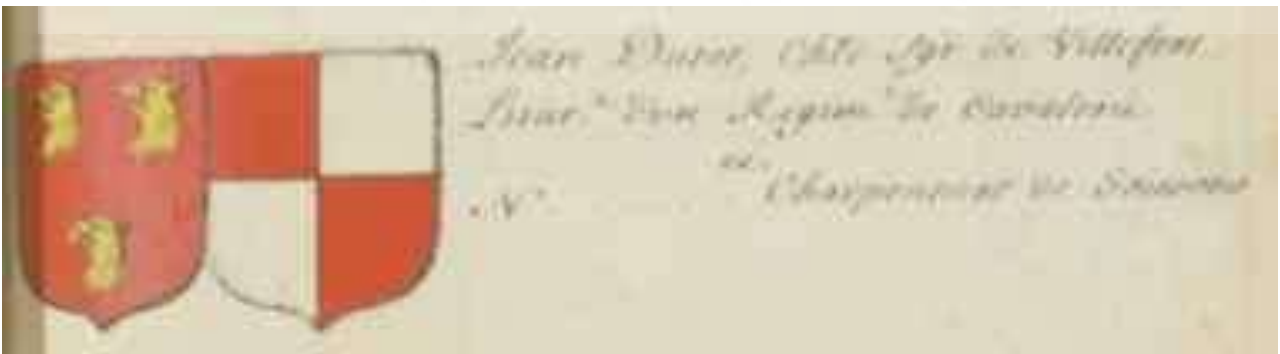 Jean Duret, Chlr Sgr de Villefort
Lieut.t d'un Regim.t de Cavalerie
et,
N Charpentier de